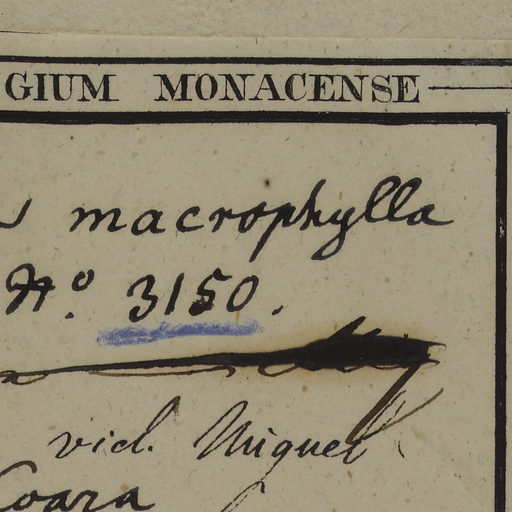 GIUM MONACENSE
macrophylla
Nº. 3150.
vid. Miquel
Coara